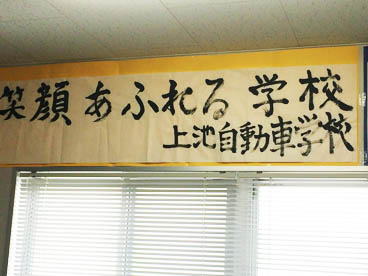 笑顔あふれる学校
上池自動車学校